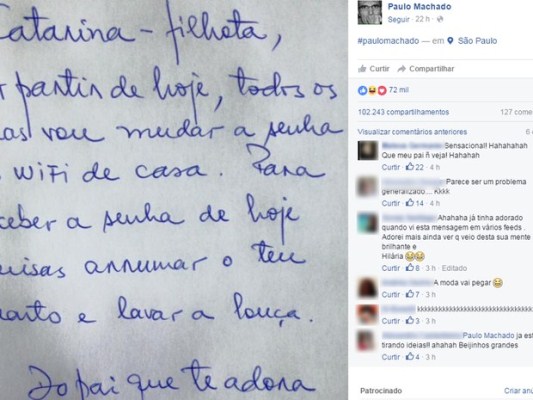 Catarina - filhota,
partir de hoje, todos os
vou mudar a senha
WIFI de casa. Para
a senha de hoje
arrumar o teu
e lavar a louça.
Do pai que te adora
Paulo Machado
Seguir · 22 h ·
#paulomachado — em São Paulo
Curtir Compartilhar
72 mil
102.243 compartilhamentos 127 come
Visualizar comentários anteriores 6
Sensacional! Hahahahah
Que meu pai ñ veja! Hahahah
Curtir · 22 · 4 h
Parece ser um problema
generalizado... Kkkk
Curtir · 14 · 4 h
Ahahaha já tinha adorado
quando vi esta mensagem em vários feeds .
Adorei mais ainda ver q veio desta sua mente
brilhante e
Hilária
Curtir · 8 · 3 h · Editado
A moda vai pegar
Curtir · 7 · 3 h
Curtir · 3 · 3 h
Paulo Machado ja es
tirando ideias!! ahahah Beijinhos grandes
Curtir · 4 · 3 h
Patrocinado Criar anú